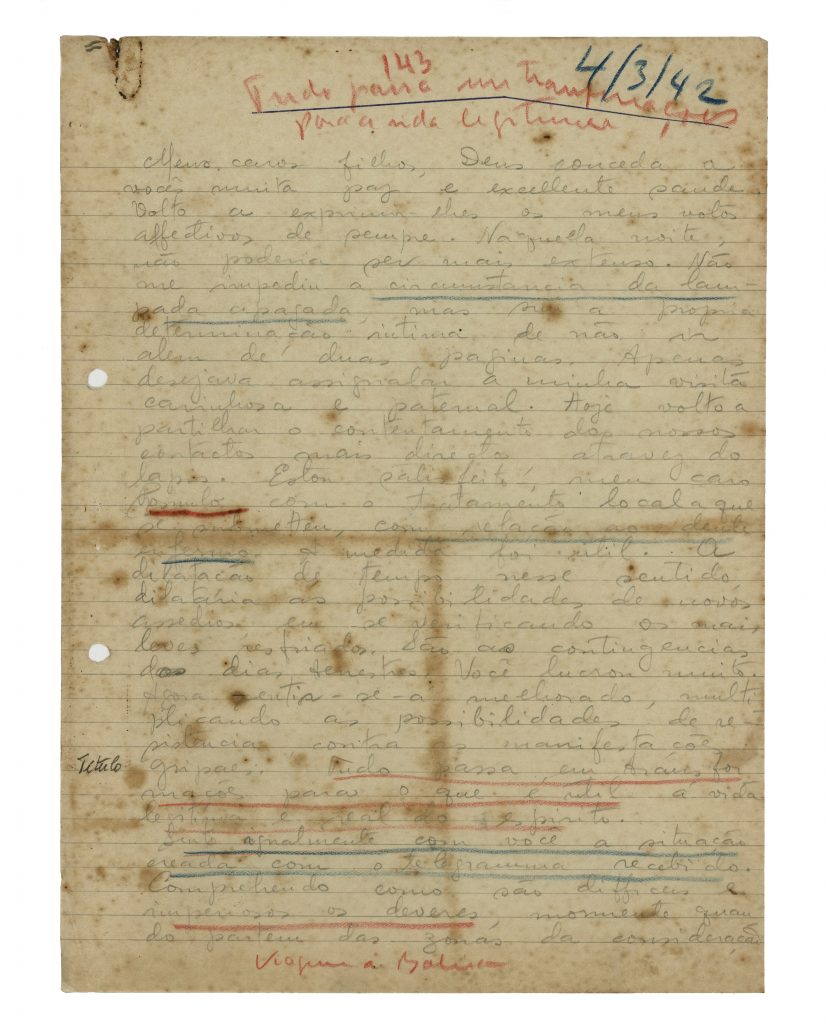 143
4/3/42
Tudo passa em transformações
para a vida legitima
Meus caros filhos, Deus conceda a
vocês muita paz e excellente saude.
Volto a exprimir-lhes os meus votos
affectivos de sempre. Naquella noite,
não poderia ser mais extenso. Não
me impediu a circumstancia da lam-
pada apagada, mas sim a propria
determinação intima de não ir
alem de duas paginas. Apenas
desejava assignalar a minha visita
carinhosa e paternal. Hoje volto a
partilhar o contentamento dos nossos
contactos mais directos atravez do
lapis. Estou satisfeito, meu caro
Romulo com o tratamento local a que
se submetteu, com relação ao dente
enfermo. A medida foi util. A
dilatação de tempo nesse sentido,
dilataria as possibilidades de novos
assedios em se verificando os mais
leves resfriados. São as contingencias
dos dias terrestres. Você lucrou muito.
Agora sentir-se-á melhorado, multi
plicando as possibilidades de re-
sistencia contra as manifestações
gripaes. Tudo passa em transfor
Titulo
mações para o que é util á vida
legitima e real do espirito.
Sinto igualmente com você a situação
creada com o telegramma recebido.
Comprehendo como são difficeis e
imperiosos os deveres, mormente quan
do partem das zonas da consideração
Viagem a Bahia